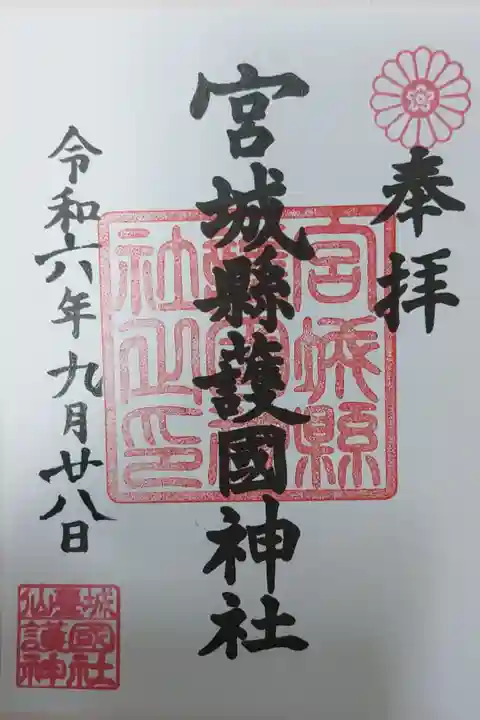 奉拝
宮城縣護國神社
令和六年九月廿八日
宮城縣
社之印